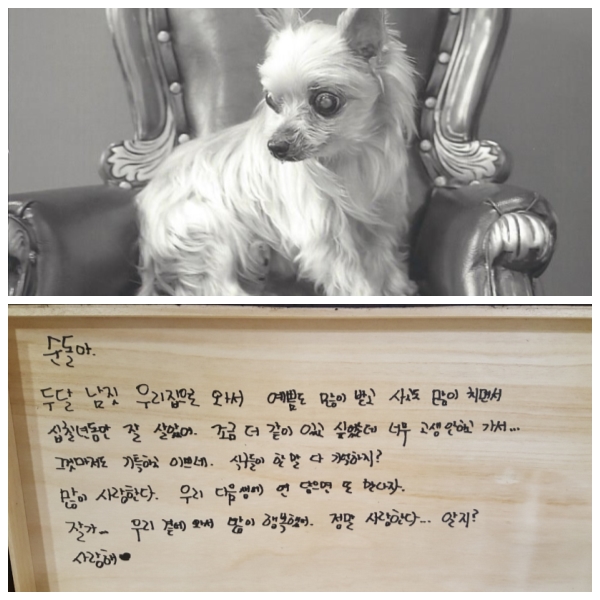 순돌아.
두달 남짓 우리집으로 와서 예쁨도 많이 받고 사고도 많이 치면서
십칠년동안 잘 살았어. 조금 더 같이 있고 싶었는데 너무 고생 안하고 가서...
그것마저도 기특하고 이쁘네. 식구들이 한 말 다 기억하지?
많이 사랑한다. 우리 다음생에 연 닿으면 또 만나자.
잘가.. 우리 곁에 와서 많이 행복했어. 정말 사랑한다... 알지?
사랑해♥